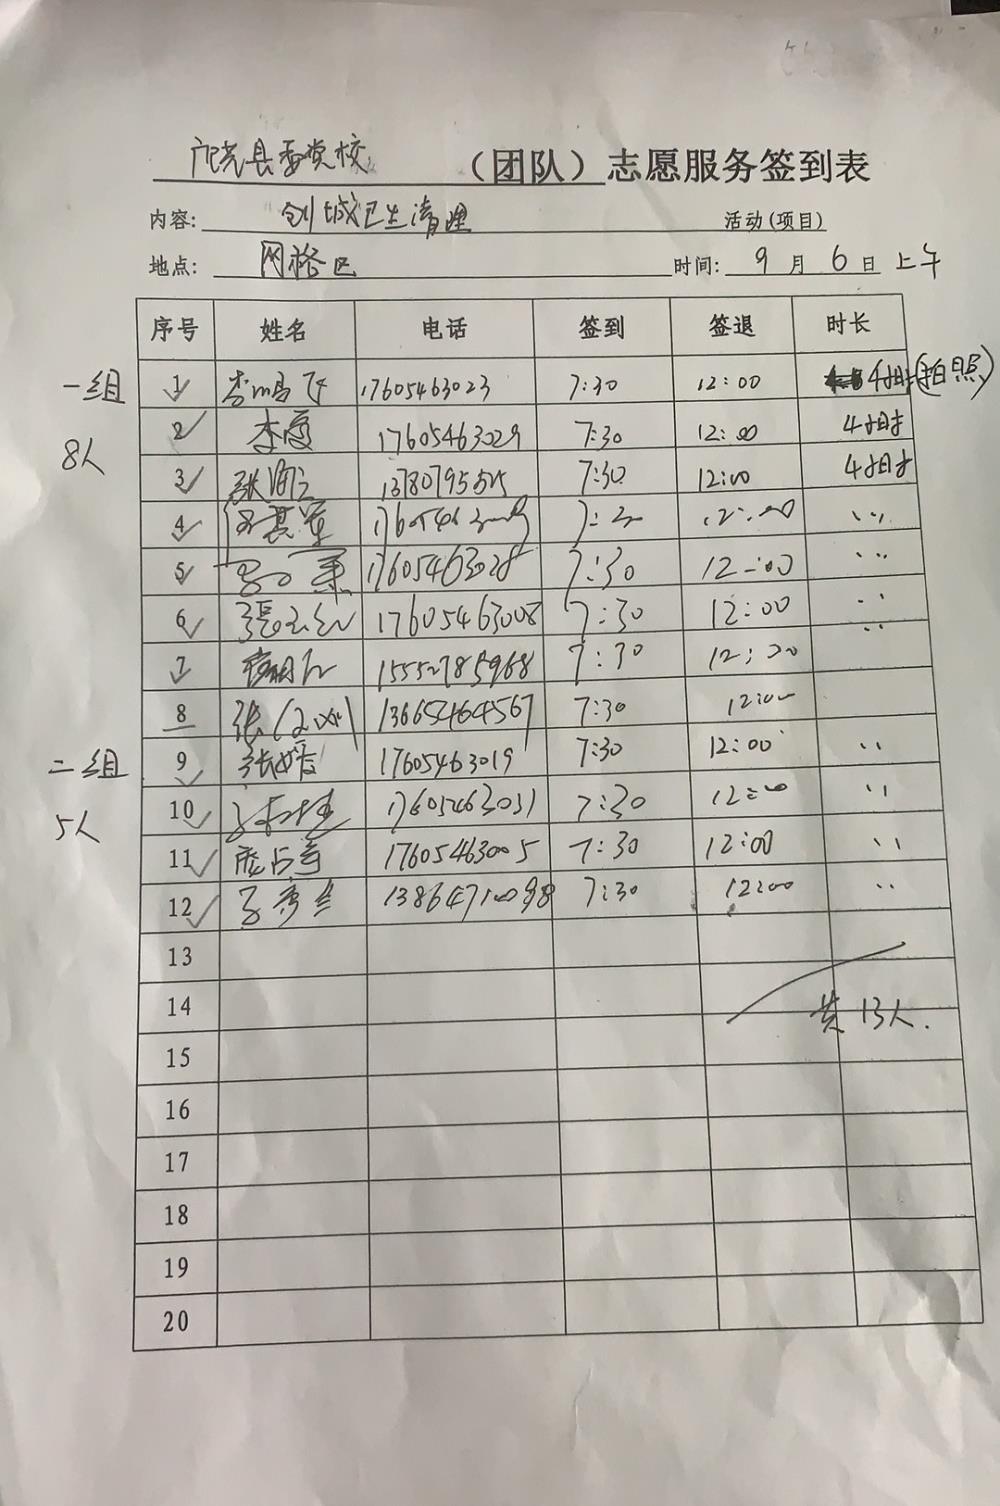 广饶县委党校 （团队）志愿服务签到表
内容: 创城卫生清理 活动(项目)
地点: 网格区 时间: 9月6日上午
序号 姓名 电话 签到 签退 时长
一组 8人
1 李鹏飞 17605463023 7:30 12:00 4小时(拍照)
2 李霞 17605463029 7:30 12:00 4小时
3 张 7:30 12:00 4小时
4
5 17605463028 7:30 12:00 〃
6 張 17605463008 7:30 12:00 〃
7 15552785968 7:30 〃
8 张 13665464567 7:30 12:00
二组 5人
9 张 17605463019 7:30 12:00 〃
10 17605463031 7:30 12:00 〃
11 17605463005 7:30 12:00 〃
12 13864710098 7:30 12:00 〃
13
14
共13人.
15
16
17
18
19
20